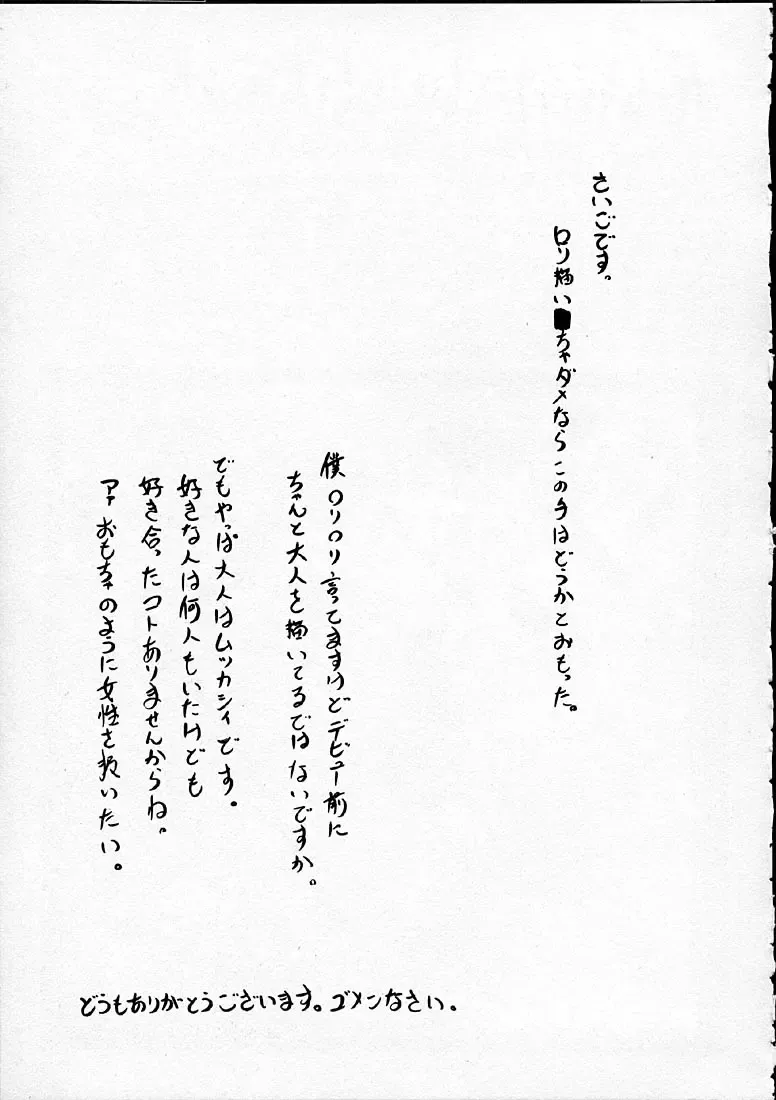 さいごです。
ロリ描いちゃダメならこの手はどうかとおもった。
僕ロリロリ言ってますけどデビュー前に
ちゃんと大人を描いてるではないですか。
でもやっぱ大人はムツカシイです。
好きな人は何人もいたけども
好き合ったコトありませんからね。
アァおもちゃのように女性を扱いたい。
どうもありがとうございます。ゴメンなさい。